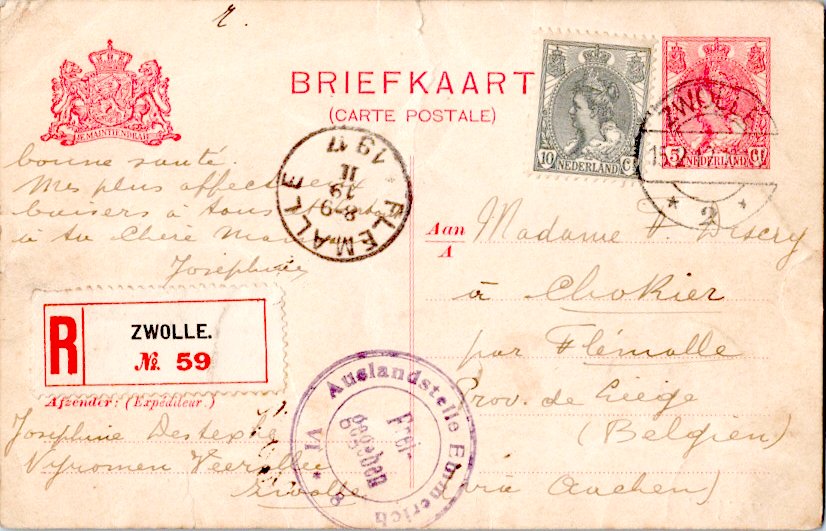 2.
BRIEFKAART
(CARTE POSTALE)
JE MAINTIENDRAI
10 Ct
NEDERLAND
5 Ct
NEDERLAND
ZWOLLE
2
FLEMALLE
8-9
19
II
1917
bonne santé.
Mes plus affectueux
baisers à tous
à ta Chère
Joséphine
Aan
A
Madame V. Descry
à Chokier
par Flémalle
Prov. de Liège
(Belgien)
via Aachen)
R
ZWOLLE.
№. 59
Afzender: (Expéditeur.)
Joséphine Destexhe
Zwolle
Auslandstelle Emmerich
VI * 8
Frei-
gegeben